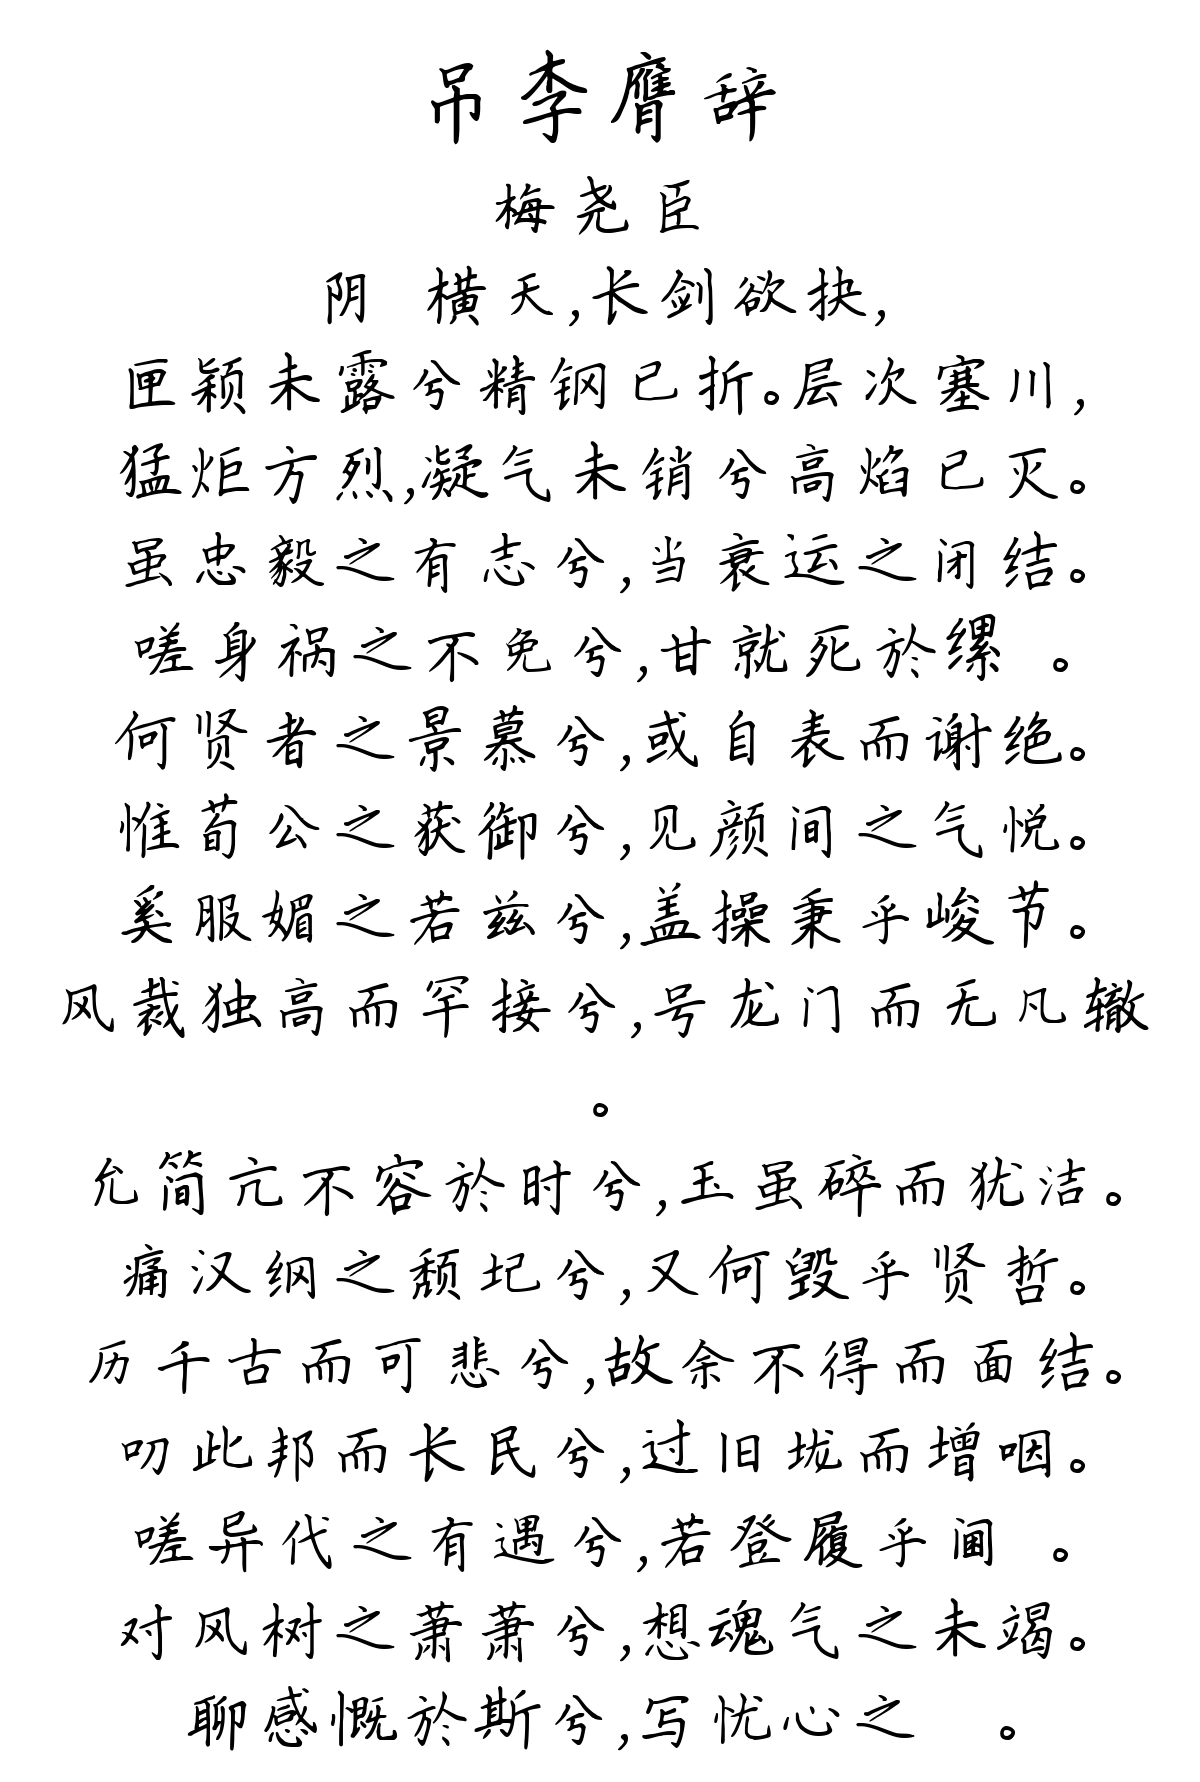 吊李膺辞
梅尧臣
阴 横天,长剑欲抉,
匣颖未露兮精钢已折。层次塞川,
猛炬方烈,凝气未销兮高焰已灭。
虽忠毅之有志兮,当衰运之闭结。
嗟身祸之不免兮,甘就死於缧 。
何贤者之景慕兮,或自表而谢绝。
惟荀公之获御兮,见颜间之气悦。
奚服媚之若兹兮,盖操秉乎峻节。
风裁独高而罕接兮,号龙门而无凡辙
。
允简亢不容於时兮,玉虽碎而犹洁。
痛汉纲之颓圮兮,又何毁乎贤哲。
历千古而可悲兮,故余不得而面结。
叨此邦而长民兮,过旧垅而增咽。
嗟异代之有遇兮,若登履乎阃 。
对风树之萧萧兮,想魂气之未竭。
聊感慨於斯兮,写忧心之 。